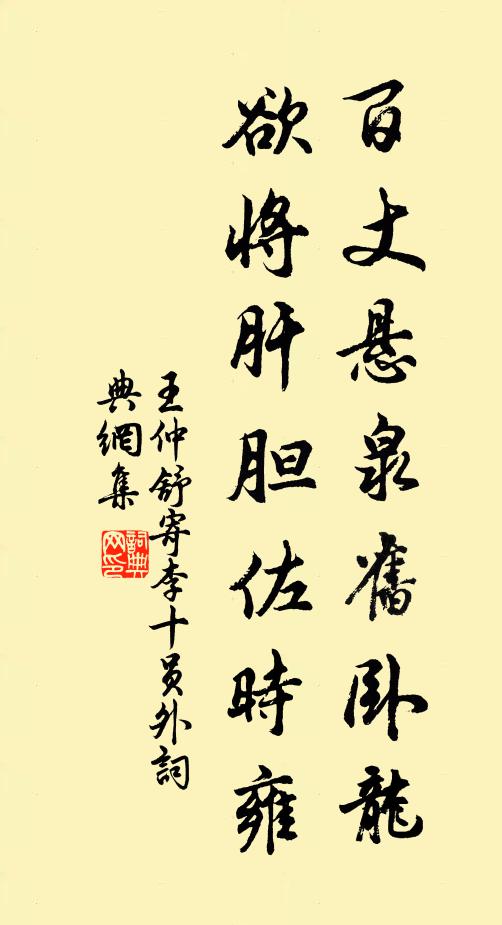 百丈悬泉舊卧龍
欲将肝胆佐時雍
王仲舒寄李十员外詞
典網集
詞典
网印